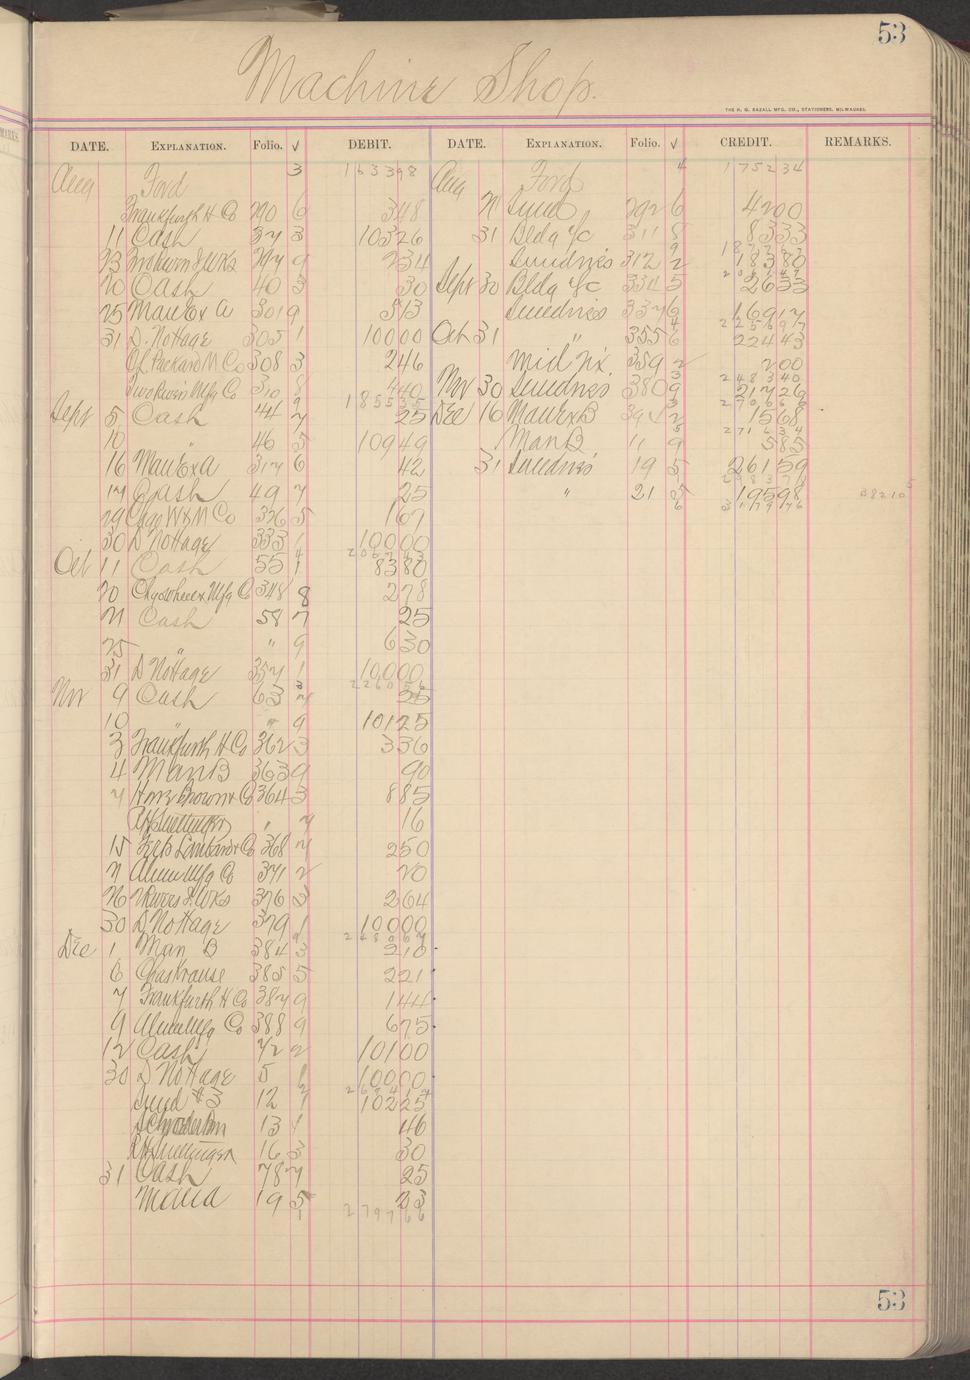 53
Machine Shop.
THE H. G. RAZALL MFG. CO., STATIONERS, MILWAUKEE.
DATE. EXPLANATION. Folio. √ DEBIT. DATE. EXPLANATION. Folio. √ CREDIT. REMARKS.
Aug Ford 3 163398
Frankfurth H Co 290 6 348
11 Cash 37 3 10326
23 294 9 234
20 Cash 40 3 30
25 Man Ex A 301 9 513
31 D. NoHage 305 1 10000
Packard M Co 308 3 246
Mfg Co 310 8 440
185535
Sept 5 Cash 44 7 25
10 " 46 5 10949
16 Man Ex A 317 6 42
17 Cash 49 7 25
29 Chas W & M Co 326 5 167
30 D NoHage 333 1 10000
206743
Oct 11 Cash 55 1 8380
20 Mfg Co 348 8 278
21 Cash 58 7 25
25 " " 9 630
31 D NoHage 357 1 10000
226056
Nov 9 Cash 63 7 25
10 " " 9 10125
3 Frankfurth H Co 362 3 336
4 Man B 363 9 90
7 Brown & Co 364 3 885
" 7 16
15 Lombard & Co 368 7 250
21 Alum Mfg Co 371 2 20
26 376 3 264
30 D NoHage 379 1 10000
248067
Dec 1 Man B 384 3 210
6 Chas Krause 385 5 221
7 Frankfurth H Co 387 9 144
9 Alum Mfg Co 388 9 675
12 Cash 72 2 10100
30 D NoHage 5 1 10000
Sund #3 12 1 10225
13 1 46
16 3 30
31 Cash 78 7 25
19 5 23
279766
Aug Ford 4 175234
21 Sund 292 6 4200
31 Bldg a/c 311 8 8333
Sundries 312 2 18380
Sept 30 Bldg a/c 334 5 2633
Sundries 337 6 16917
Oct 31 " 355 6 22443
359 2 200
248340
Nov 30 Sundries 380 9 21726
Dec 16 Man Ex B 394 2 1568
271634
Man B 11 9 585
31 Sundries 19 5 26159
" 21 5 19598
317976
38210
53